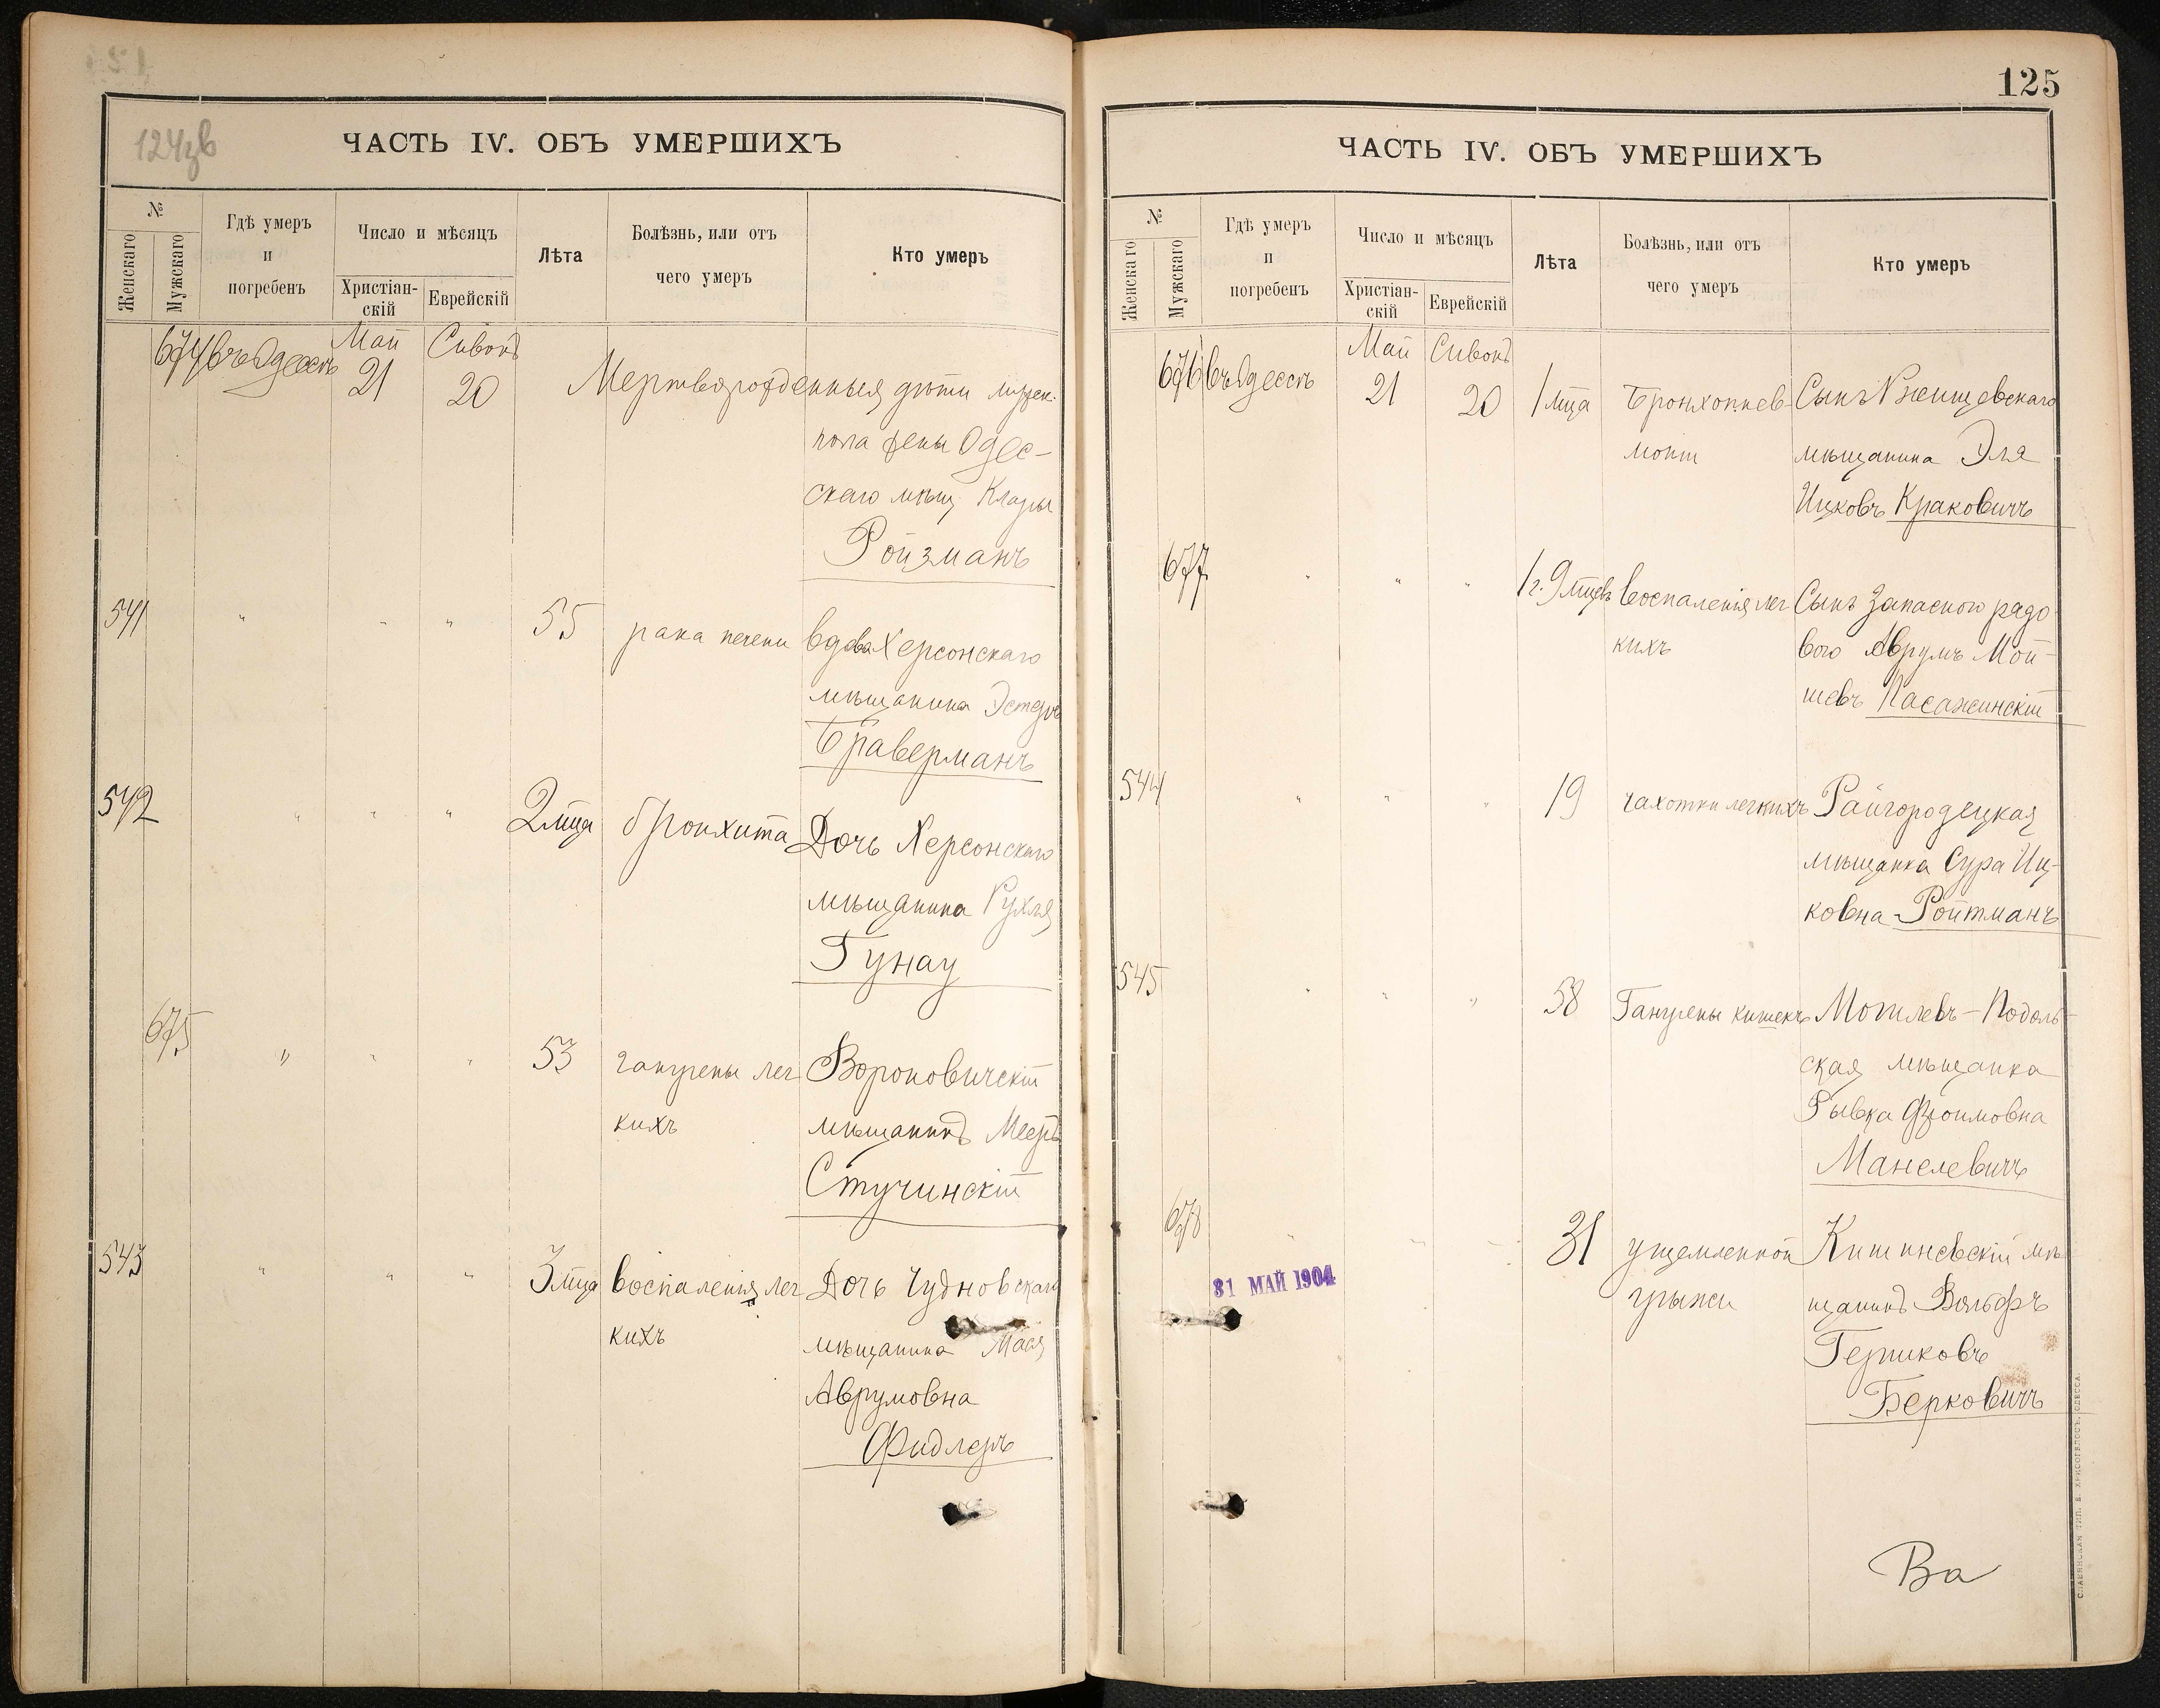 124зв
ЧАСТЬ IV. ОБЪ УМЕРШИХЪ
№
Женскаго
Мужскаго
Гдѣ умеръ
и
погребенъ
Число и мѣсяцъ
Христіан-
скій
Еврейскій
Лѣта
Болѣзнь, или отъ
чего умеръ
Кто умеръ
Май Сивонъ
674 въ Одессѣ 21 20 Мертворожденныя дѣти мужск.
пола жены Одес-
скаго мѣщ. Клары
Ройзманъ
541 " " " 55 рака печени вдова Херсонскаго
мѣщанина Эстеръ
Браверманъ
542 " " " 2 мца бронхита Дочь Херсонскаго
мѣщанина Рухля
Гунау
675 " " " 53 гангрены лег
кихъ
Вороновичскій
мѣщанинъ Мееръ
Стучинскій
543 " " " 3 мца воспаленія лег
кихъ
Дочь Чудновскаго
мѣщанина Мася
Аврумовна
Фидлеръ
125
ЧАСТЬ IV. ОБЪ УМЕРШИХЪ
№
Женскаго
Мужскаго
Гдѣ умеръ
и
погребенъ
Число и мѣсяцъ
Христіан-
скій
Еврейскій
Лѣта
Болѣзнь, или отъ
чего умеръ
Кто умеръ
Май Сивонъ
676 въ Одессѣ 21 20 1 мца Бронхопнев-
моніи
Сынъ Ржищевскаго
мѣщанина Эля
Ицковъ Краковичъ
677 " " " 1 г. 9 мцевъ воспаленія лег
кихъ
Сынъ Запасного рядо
вого Аврумъ Мой-
шевъ Пасажинскій
544 " " " 19 чахотки легкихъ Райгородецкая
мѣщанка Сура Иц-
ковна Ройтманъ
545 " " " 58 Гангрены кишекъ Могилевъ-Подоль-
ская мѣщанка
Рывка Фроимовна
Манелевичъ
678 " " " 31 ущемленной
грыжи
Кишиневскій мѣ
щанинъ Вольфъ
Гершковъ
Берковичъ
31 МАЙ 1904
Ва
СЛАВЯНСКАЯ ТИП. Е. ХРИСОГЕЛОСЪ, ОДЕССА.